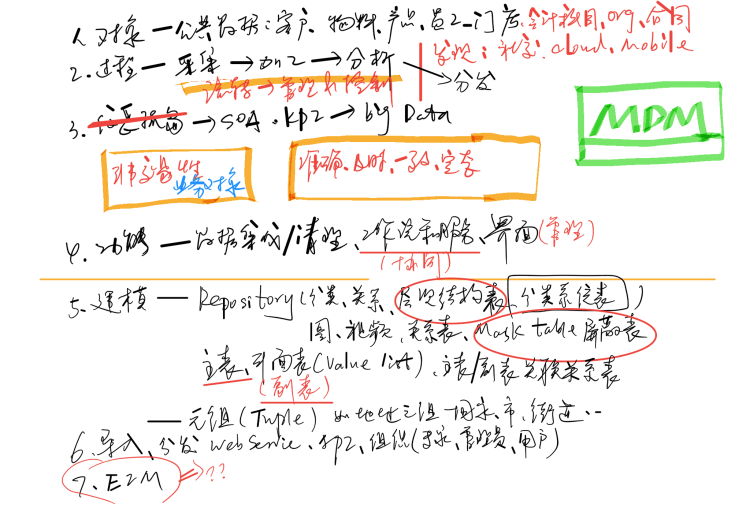 1. 对象 — 公共数据：客户、物料、产品、员工、部门、会计科目、org、合同
发现：社交、cloud、mobile
2. 过程 — 采集 → 加工 → 分析 → 分发
流转 → 管理和控制
3. → SOA、KPI → big Data
MDM
非交易性
业务对象
准确、及时、一致、完整
4. 功能 — 数据集成/清理、工作流和服务、界面(管理)
(协同)
5. 建模 — Repository (分类、关系、层次结构表、分类系统表)
图、视频、关系表、Mask table 屏蔽表
主表、引用表(Value list)、主表/副表关联关系表
(副表)
— 元组(Tuple) 如地址三组 — 国家、市、街道…
6. 导入、分发 Web Service、组织(专家、管理员、用户)
7. E2M → ??